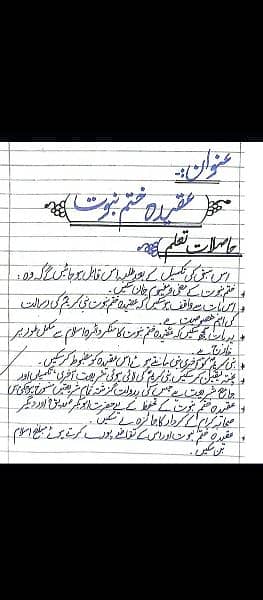 عنوان:-
عقیدہ ختم نبوت
حاصلات تعلم
اس سبق کی تکمیل کے بعد طلبہ اس قابل ہو جائیں گے کہ وہ:
ختم نبوت کے معنی و مفہوم جان سکیں۔
اس بات سے واقف ہو سکیں کہ عقیدہ ختم نبوت نبی کریم کی رسالت
کی اہم خصوصیت ہے۔
یہ بات سمجھ سکیں کہ عقیدہ ختم نبوت کا منکر دائرہ اسلام سے مکمل طور پر
خارج ہے۔
نبی کریم کو آخری نبی مانتے ہوئے اس عقیدہ کو مضبوط کر سکیں۔
پختہ یقین کر سکیں نبی کریم کی لائی ہوئی شریعت آخری، مکمل اور
جامع شریعت ہے جس کی بدولت گزشتہ تمام شریعتیں منسوخ ہو گئی ہیں
عقیدہ ختم نبوت کے تحفظ کے لیے حضرت ابوبکر صدیق اور دیگر
صحابہ کرام کے کردار کا جائزہ لے سکیں۔
عقیدہ ختم نبوت اور اس کے تقاضے پورے کرتے ہوئے مبلغ اسلام
بن سکیں۔